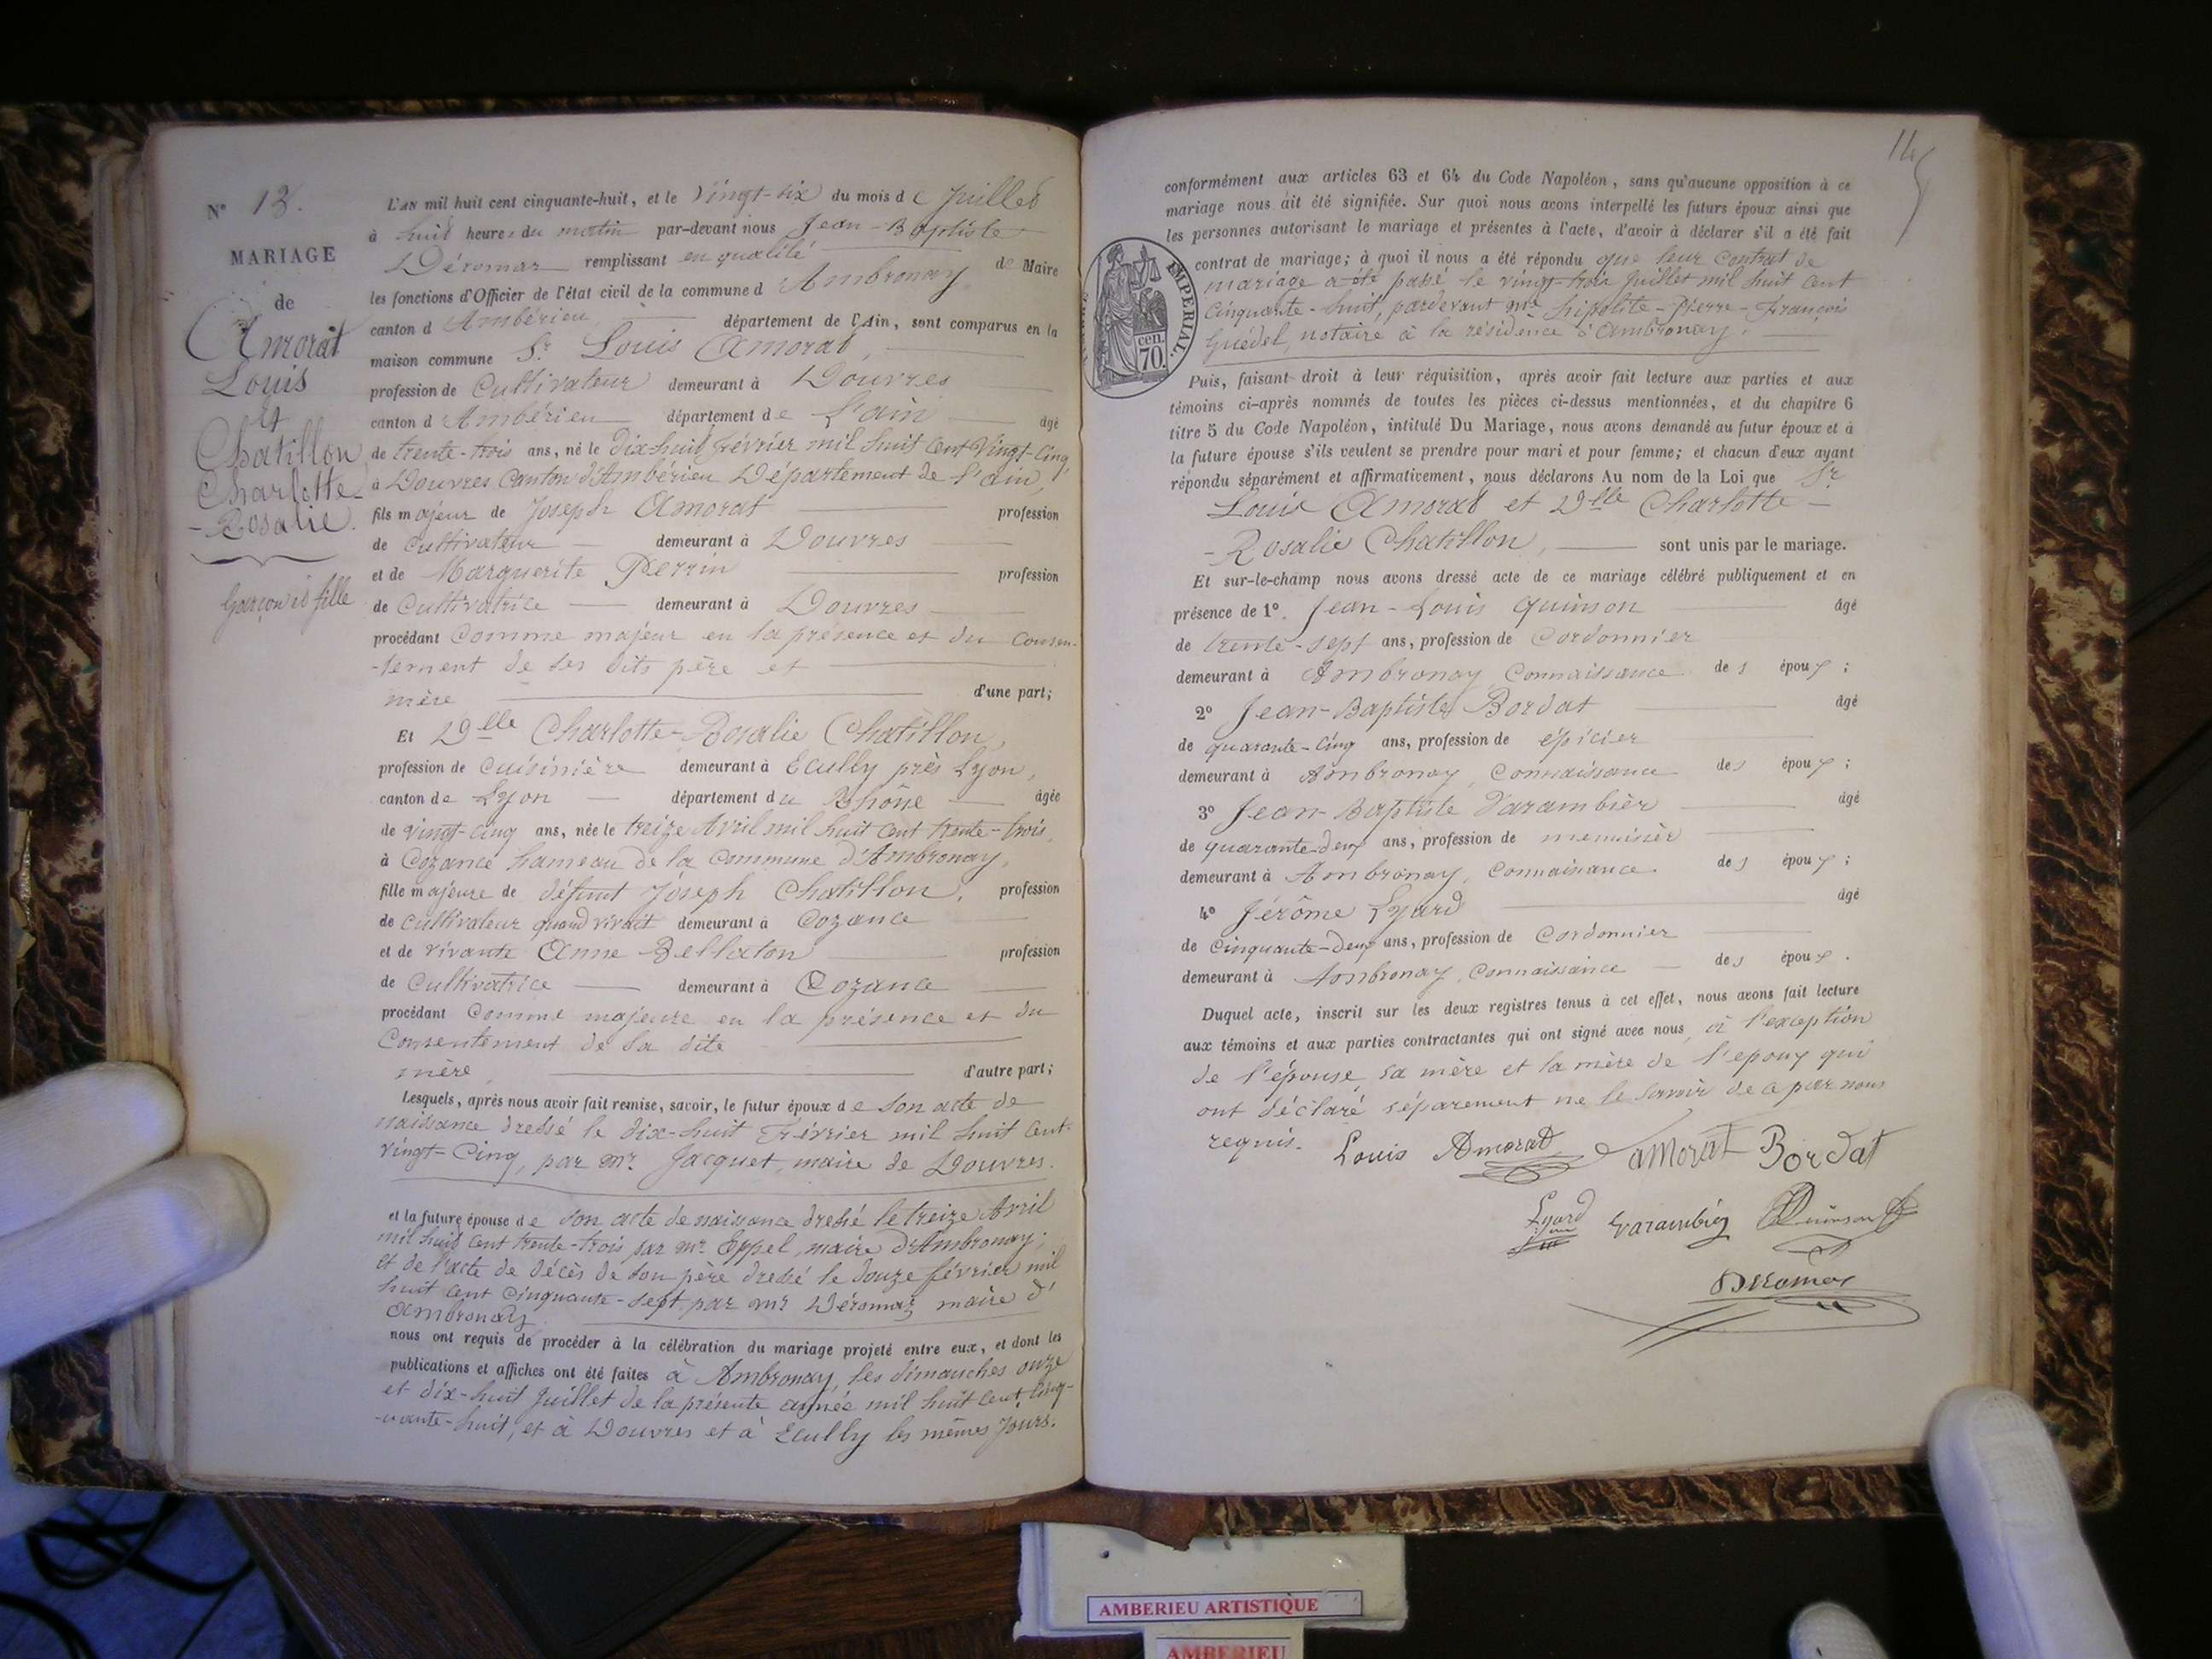 N° 13.
MARIAGE
de
Amorat
Louis
et
Chatillon
Charlotte-
-Rosalie.
Garçon et fille
L'AN mil huit cent cinquante-huit, et le Vingt-six du mois de Juillet
à huit heures du matin par-devant nous Jean-Baptiste
Déromas remplissant en qualité de Maire
les fonctions d'Officier de l'état civil de la commune d Ambronay
canton d Ambérieu, département de l'Ain, sont comparus en la
maison commune Sr. Louis Amorat,
profession de Cultivateur demeurant à Douvres
canton d Ambérieu département de L'ain âgé
de trente-trois ans, né le dix huit février mil huit Cent Vingt-Cinq,
à Douvres Canton d'Ambérieu Département de l'ain,
fils majeur de Joseph Amorat profession
de Cultivateur demeurant à Douvres
et de Marguerite Perrin profession
de Cultivatrice demeurant à Douvres
procédant Comme majeur en la présence et du Consen-
-tement de ses dits père et
mère d'une part;
Et Dlle Charlotte-Rosalie Chatillon,
profession de Cuisinière demeurant à Ecully près Lyon,
canton de Lyon département du Rhône âgée
de vingt-cinq ans, née le treize Avril mil huit cent trente-trois,
à Cozance hameau de la Commune d'Ambronay,
fille majeure de défunt Joseph Chatillon, profession
de cultivateur quand vivait demeurant à Cozance
et de vivante Anne Bellaton profession
de Cultivatrice demeurant à Cozance
procédant Comme majeure en la présence et du
Consentement de sa dite
mère d'autre part;
Lesquels, après nous avoir fait remise, savoir, le futur époux de son acte de
naissance dressé le dix-huit Février mil huit Cent-
vingt-Cinq, par mr. Jacquet, maire de Douvres.
et la future épouse de son acte de naissance dressé le treize Avril
mil huit cent trente-trois par mr. Eppel, maire d'Ambronay;
et de l'acte de décès de son père dressé le douze février mil
huit cent cinquante-sept par mr Déromas maire d'
Ambronay.
nous ont requis de procéder à la célébration du mariage projeté entre eux, et dont les
publications et affiches ont été faites à Ambronay, les dimanches onze
et dix-huit Juillet de la présente année mil huit Cent Cinq-
-uante-huit, et à Douvres et à Ecully les mêmes Jours.
14
conformément aux articles 63 et 64 du Code Napoléon, sans qu'aucune opposition à ce
mariage nous ait été signifiée. Sur quoi nous avons interpellé les futurs époux ainsi que
les personnes autorisant le mariage et présentes à l'acte, d'avoir à déclarer s'il a été fait
contrat de mariage; à quoi il nous a été répondu que leur Contrat de
mariage a été passé le vingt-trois Juillet mil huit cent
Cinquante-huit, pardevant mr. hipolite-Pierre-François
Guédel, notaire à la résidence d'Ambronay.
IMPERIAL.
cen.
70.
Puis, faisant droit à leur réquisition, après avoir fait lecture aux parties et aux
témoins ci-après nommés de toutes les pièces ci-dessus mentionnées, et du chapitre 6
titre 5 du Code Napoléon, intitulé Du Mariage, nous avons demandé au futur époux et à
la future épouse s'ils veulent se prendre pour mari et pour femme; et chacun d'eux ayant
répondu séparément et affirmativement, nous déclarons Au nom de la Loi que Sr
Louis Amorat et Dlle Charlotte-
-Rosalie Chatillon, sont unis par le mariage.
Et sur-le-champ nous avons dressé acte de ce mariage célébré publiquement et en
présence de 1°. Jean-Louis Quinson âgé
de trente-sept ans, profession de Cordonnier
demeurant à Ambronay, Connaissance des époux;
2° Jean-Baptiste Bordat âgé
de quarante-cinq ans, profession de épicier
demeurant à Ambronay, Connaissance des époux;
3° Jean-Baptiste Varambier âgé
de quarante-deux ans, profession de menuisier
demeurant à Ambronay, Connaissance des époux;
4° Jérôme Lyard âgé
de cinquante-deux ans, profession de Cordonnier
demeurant à Ambronay, Connaissance des époux.
Duquel acte, inscrit sur les deux registres tenus à cet effet, nous avons fait lecture
aux témoins et aux parties contractantes qui ont signé avec nous, à l'exception
de l'épouse, sa mère et la mère de l'epoux qui
ont déclaré séparement ne le savoir de ce par nous
requis. Louis Amorat amorat Bordat
Lyard Varambier Quinson
Déromas
AMBERIEU ARTISTIQUE
AMBERIEU